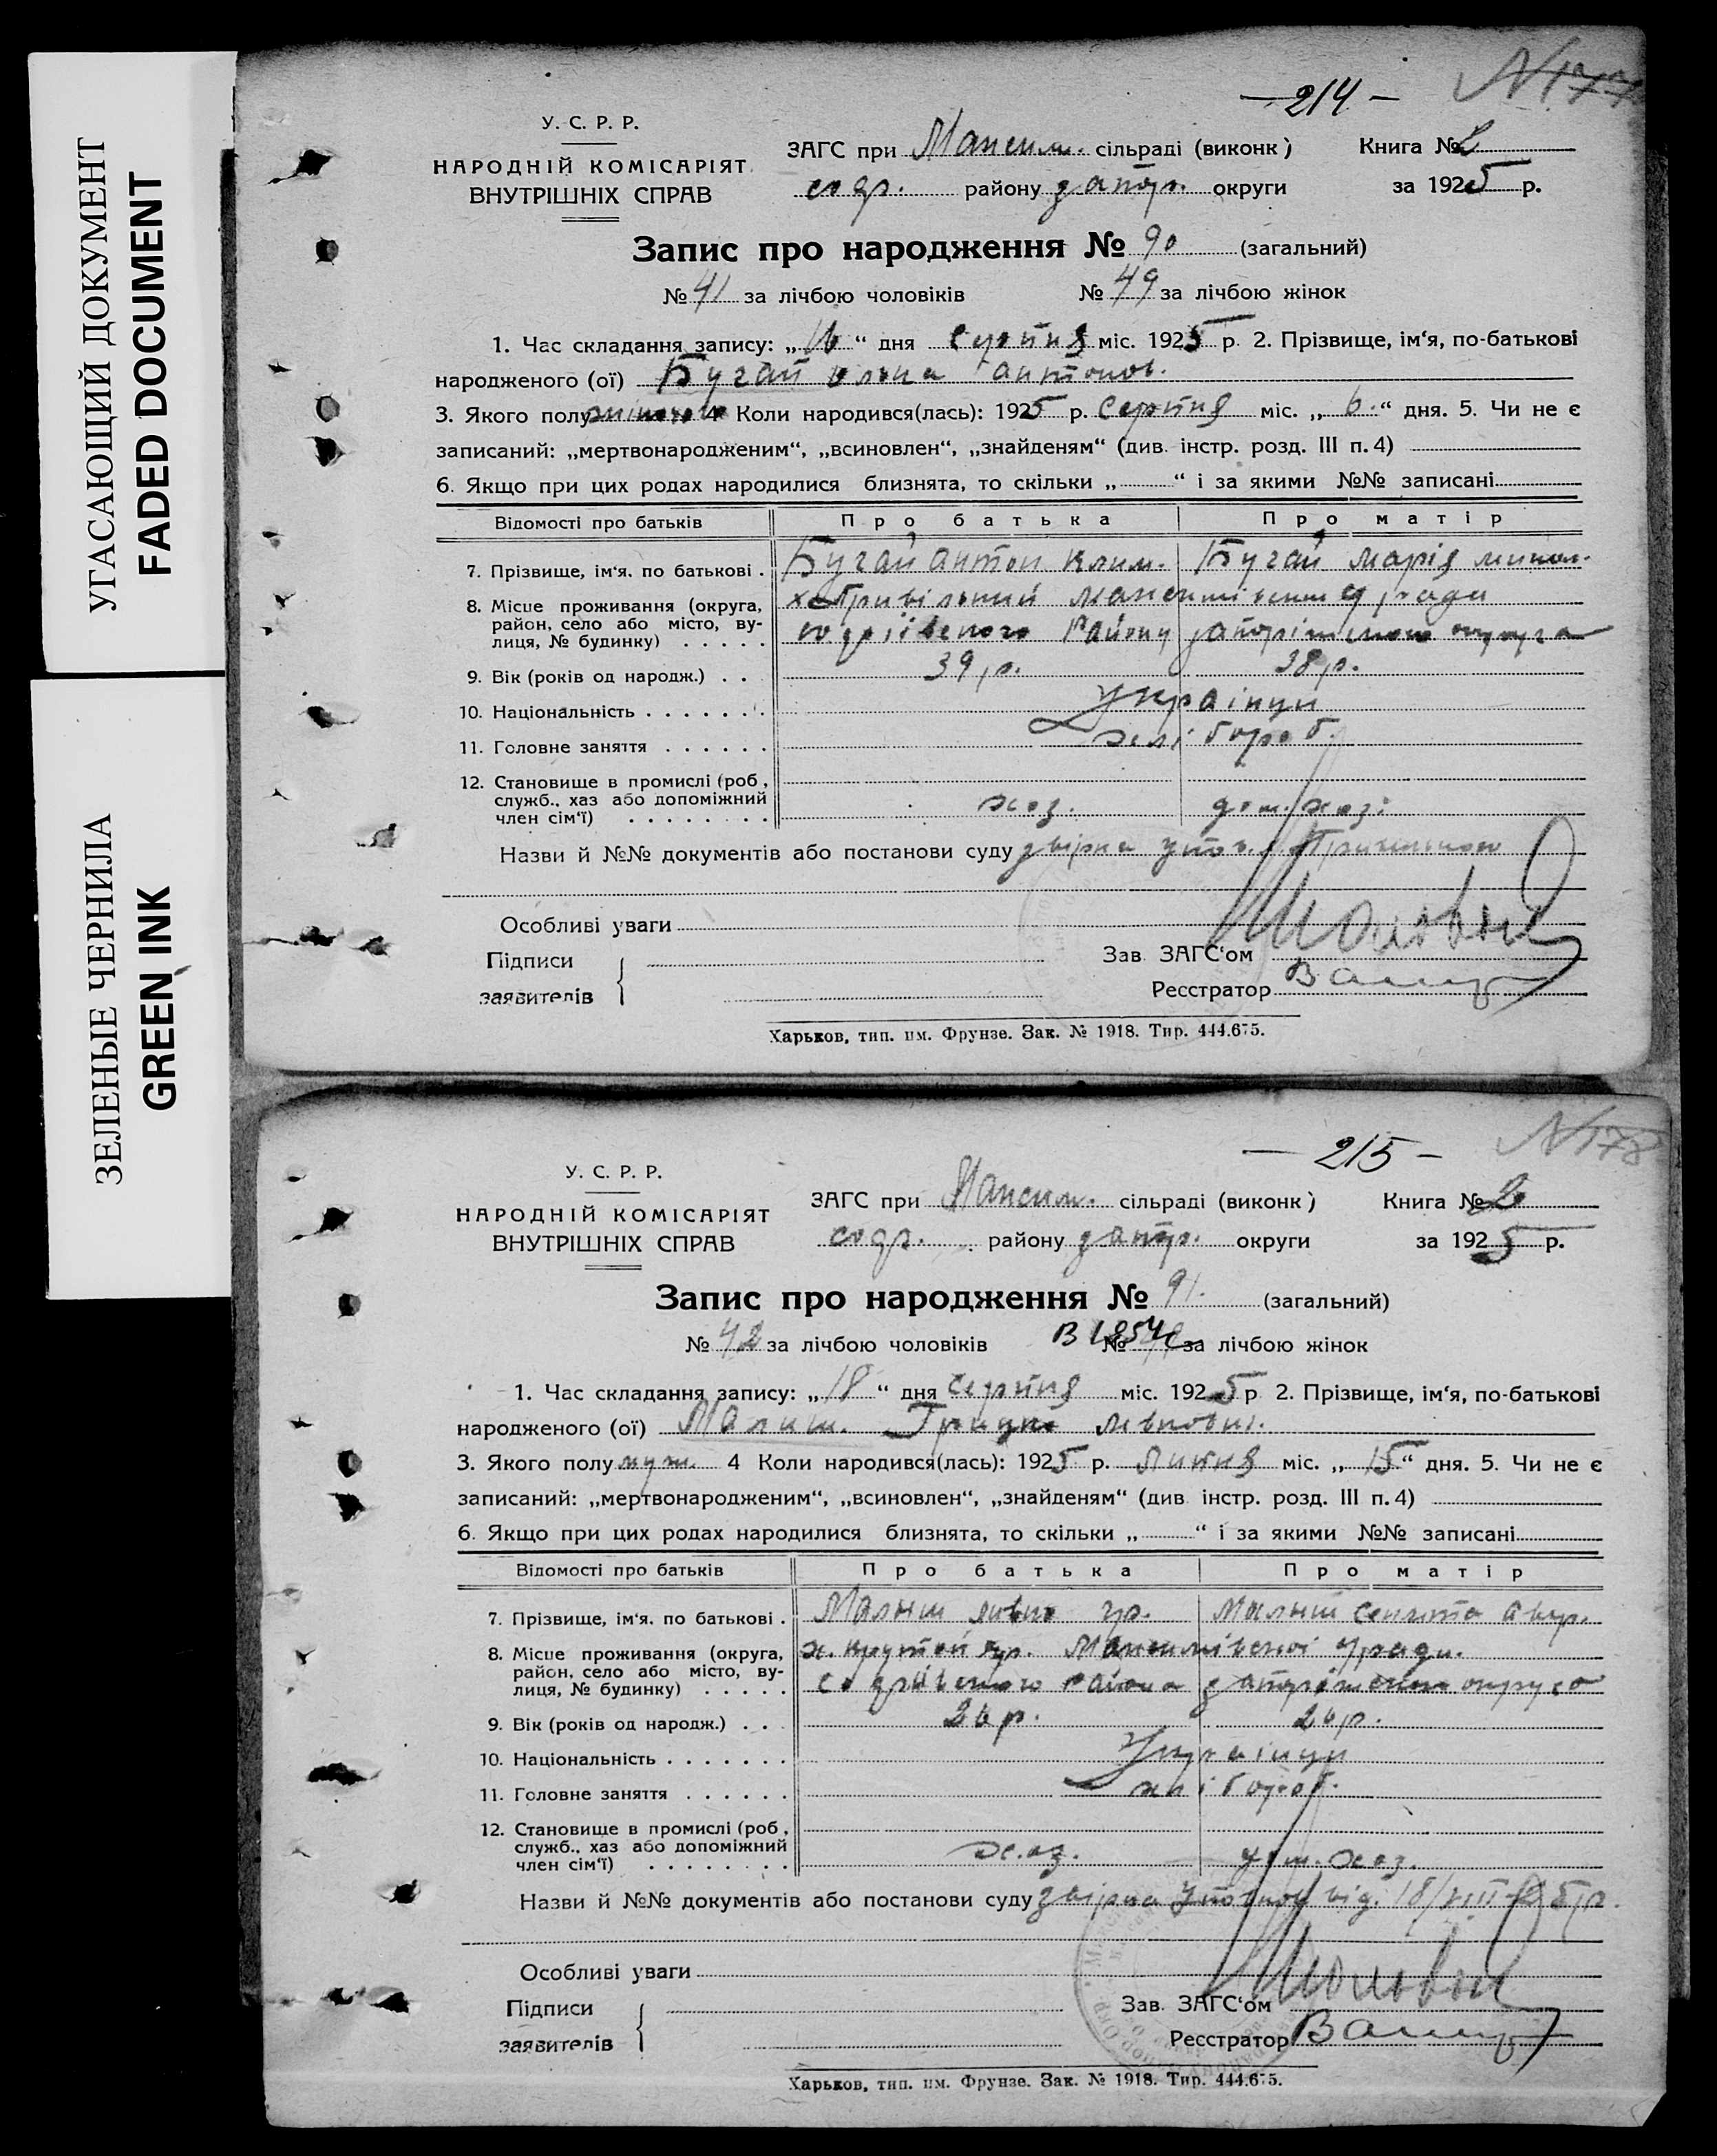 УГАСАЮЩИЙ ДОКУМЕНТ
FADED DOCUMENT
ЗЕЛЕНЫЕ ЧЕРНИЛА
GREEN INK
—214— N177
У. С. Р. Р.
НАРОДНІЙ КОМІСАРІЯТ
ВНУТРІШНІХ СПРАВ
ЗАГС при Максим. сільраді (виконк) Книга № 2
софр. району запор. округи за 1925 р.
Запис про народження № 90 (загальний)
№ 41 за лічбою чоловіків № 49 за лічбою жінок
1. Час складання запису: „16“ дня серпня міс. 1925 р. 2. Прізвище, ім‘я, по-батькові
народженого (ої) Бугай антонов.
3. Якого полу жіночого 4 Коли народився(лась): 1925 р. Серпня міс. „6.“ дня. 5. Чи не є
записаний: „мертвонародженим“, „всиновлен“, „знайденям“ (див. інстр. розд. III п. 4)
6. Якщо при цих родах народилися близнята, то скільки „ “ і за якими №№ записані
Відомості про батьків Про батька Про матір
7. Прізвище, ім‘я. по батькові . Бугай антон клим. Бугай марія микол.
8. Місце проживання (округа, район, село або місто, вулиця, № будинку) х. Привільний Максимівської ради
софіївского району запоріжської округа
9. Вік (років од народж.) . . 39 р. 38 р.
10. Національність . . . . . . . Українци
11. Головне заняття . . . . . . хлібороб.
12. Становище в промислі (роб, служб., хаз або допоміжний член сім‘ї) . . . . . . . . хоз. дом. хоз.
Назви й №№ документів або постанови суду звірка упов. Привільного
Особливі уваги
Підписи
заявителів
Зав. ЗАГС‘ом
Реєстратор
Харьков, тип. им. Фрунзе. Зак. № 1918. Тир. 444.675.
— 215 — N178
У. С. Р. Р.
НАРОДНІЙ КОМІСАРІЯТ
ВНУТРІШНІХ СПРАВ
ЗАГС при Максим. сільраді (виконк) Книга № 2
софр. району запор. округи за 1925 р.
Запис про народження № 91. (загальний)
№ 42 за лічбою чоловіків № за лічбою жінок
1. Час складання запису: „18“ дня серпня міс. 1925 р 2. Прізвище, ім‘я, по-батькові
народженого (ої) Малиш. Грицко
3. Якого полу муж. 4 Коли народився(лась): 1925 р. Липня міс. „15“ дня. 5. Чи не є
записаний: „мертвонародженим“, „всиновлен“, „знайденям“ (див. інстр. розд. III п. 4)
6. Якщо при цих родах народилися близнята, то скільки „ “ і за якими №№ записані
Відомості про батьків Про батька Про матір
7. Прізвище, ім‘я. по батькові . Малыш гр. Малыш
8. Місце проживання (округа, район, село або місто, вулиця, № будинку) х. Крутой яр. Максимівскої ради.
софіївского района запоріжскои округа
9. Вік (років од народж.) . . . 26 р. 26 р.
10. Національність . . . . . . . Українци
11. Головне заняття . . . . . . хлібороб.
12. Становище в промислі (роб, служб., хаз або допоміжний член сім‘ї) . . . . . . . . хоз. дом. хоз.
Назви й №№ документів або постанови суду звірка упов від. 18/VIII-25 р.
Особливі уваги
Підписи
заявителів
Зав. ЗАГС‘ом
Реєстратор
Харьков, тип. им. Фрунзе. Зак. № 1918. Тир. 444.675.